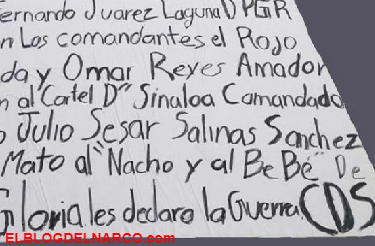 ernando Juarez Laguna D PGR
n Los comandantes el Rojo
da y Omar Reyes Amador
n al Cartel D" Sinaloa Comandado
o Julio Sesar Salinas Sanchez
Mato al "Nacho y al BeBé" De
Gloria les declaro la Guerra. CDS
ELBLOGDELNARCO.COM